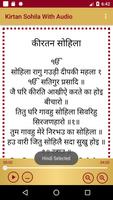 Kirtan Sohila With Audio
कीरतन सोहिला
सोहिला रागु गउड़ी दीपकी महला १
ੴ सतिगुर प्रसादि ॥
जै घरि कीरति आखीऐ करते का होइ
बीचारो ॥
तितु घरि गावहु सोहिला सिवरिहु
सिरजणहारो ॥१॥
तुम गावहु मेरे निरभउ का सोहिला ॥
हउ वारी जितु सोहिलै सदा सुखु होइ
Hindi Selected